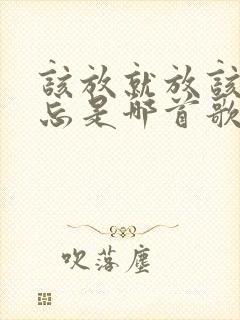 該放就放該
忘是哪首歌
吹落塵